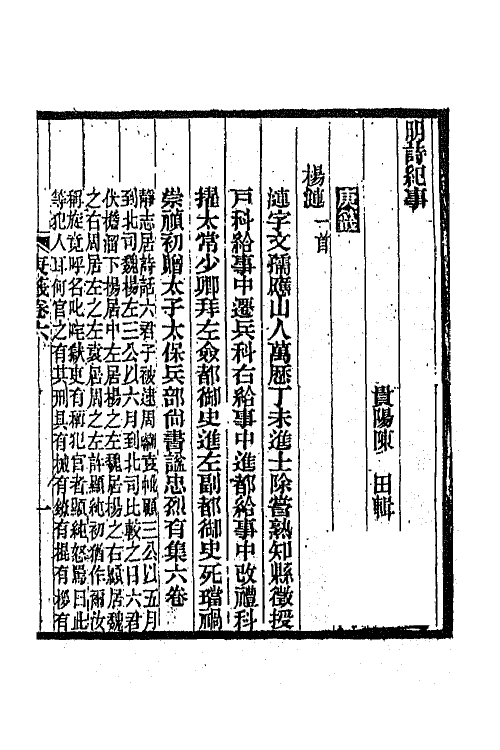 明詩紀事
貴陽陳　田輯
庚籤
楊漣一首
漣字文孺應山人萬歷丁未進士除嘗熟知縣徵授
戶科給事中遷兵科右給事中進都給事中改禮科
擢太常少卿拜左僉都御史進左副都御史死璫禍
崇禎初贈太子太保兵部尚書諡忠烈有集六卷
靜志居詩話六君子被逮周袁顧三公以五月
到北司魏楊左三公以六月到北司比較之日六君
伏檐溜下楊居中左居楊之左魏居楊之右顧居魏
之右周居左之左袁居周之左許顯純初猶作爾汝
稱旋竟呼名叱咤獄吏有稱犯官者顯純怒罵曰此
等犯人耳何官之有其刑具有械有鐐有棍有拶有
庚籤卷六
一